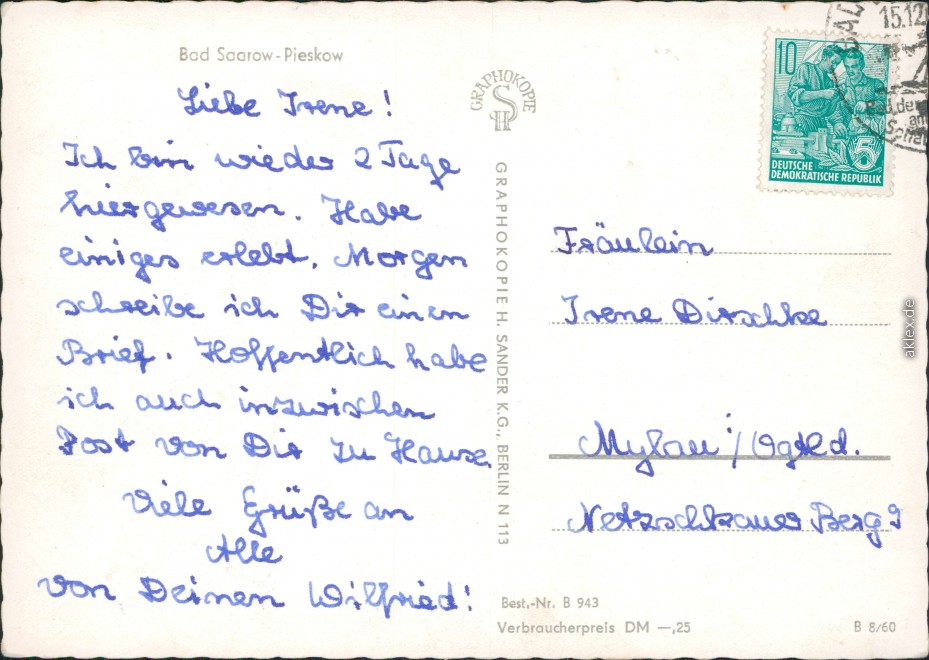 Bad Saarow-Pieskow
Liebe Irene!
Ich bin wieder 2 Tage
hiergewesen. Habe
einiges erlebt. Morgen
schreibe ich Dir einen
Brief. Hoffentlich habe
ich auch inzwischen
Post von Dir zu Hause.
Viele Grüße an
Alle
von Deinen Wilfried!
GRAPHOKOPIE
H S
GRAPHOKOPIE H. SANDER K.G., BERLIN N 113
10
5
DEUTSCHE
DEMOKRATISCHE REPUBLIK
BAD
15.12
Bad der
am
Fräulein
Irene Dirschke
Mylau i/Vgtld.
Netzschkauer Berg 9
Best.-Nr. B 943
Verbraucherpreis DM —,25
B 8/60
aklex.de